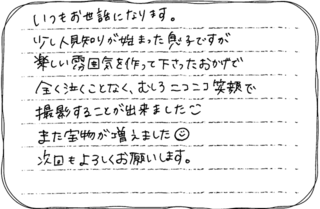 いつもお世話になります。
少し人見知りが始まった息子ですが
楽しい雰囲気を作って下さったおかげで
全く泣くことなく、むしろニコニコ笑顔で
撮影することが出来ました
また宝物が増えました
次回もよろしくお願いします。